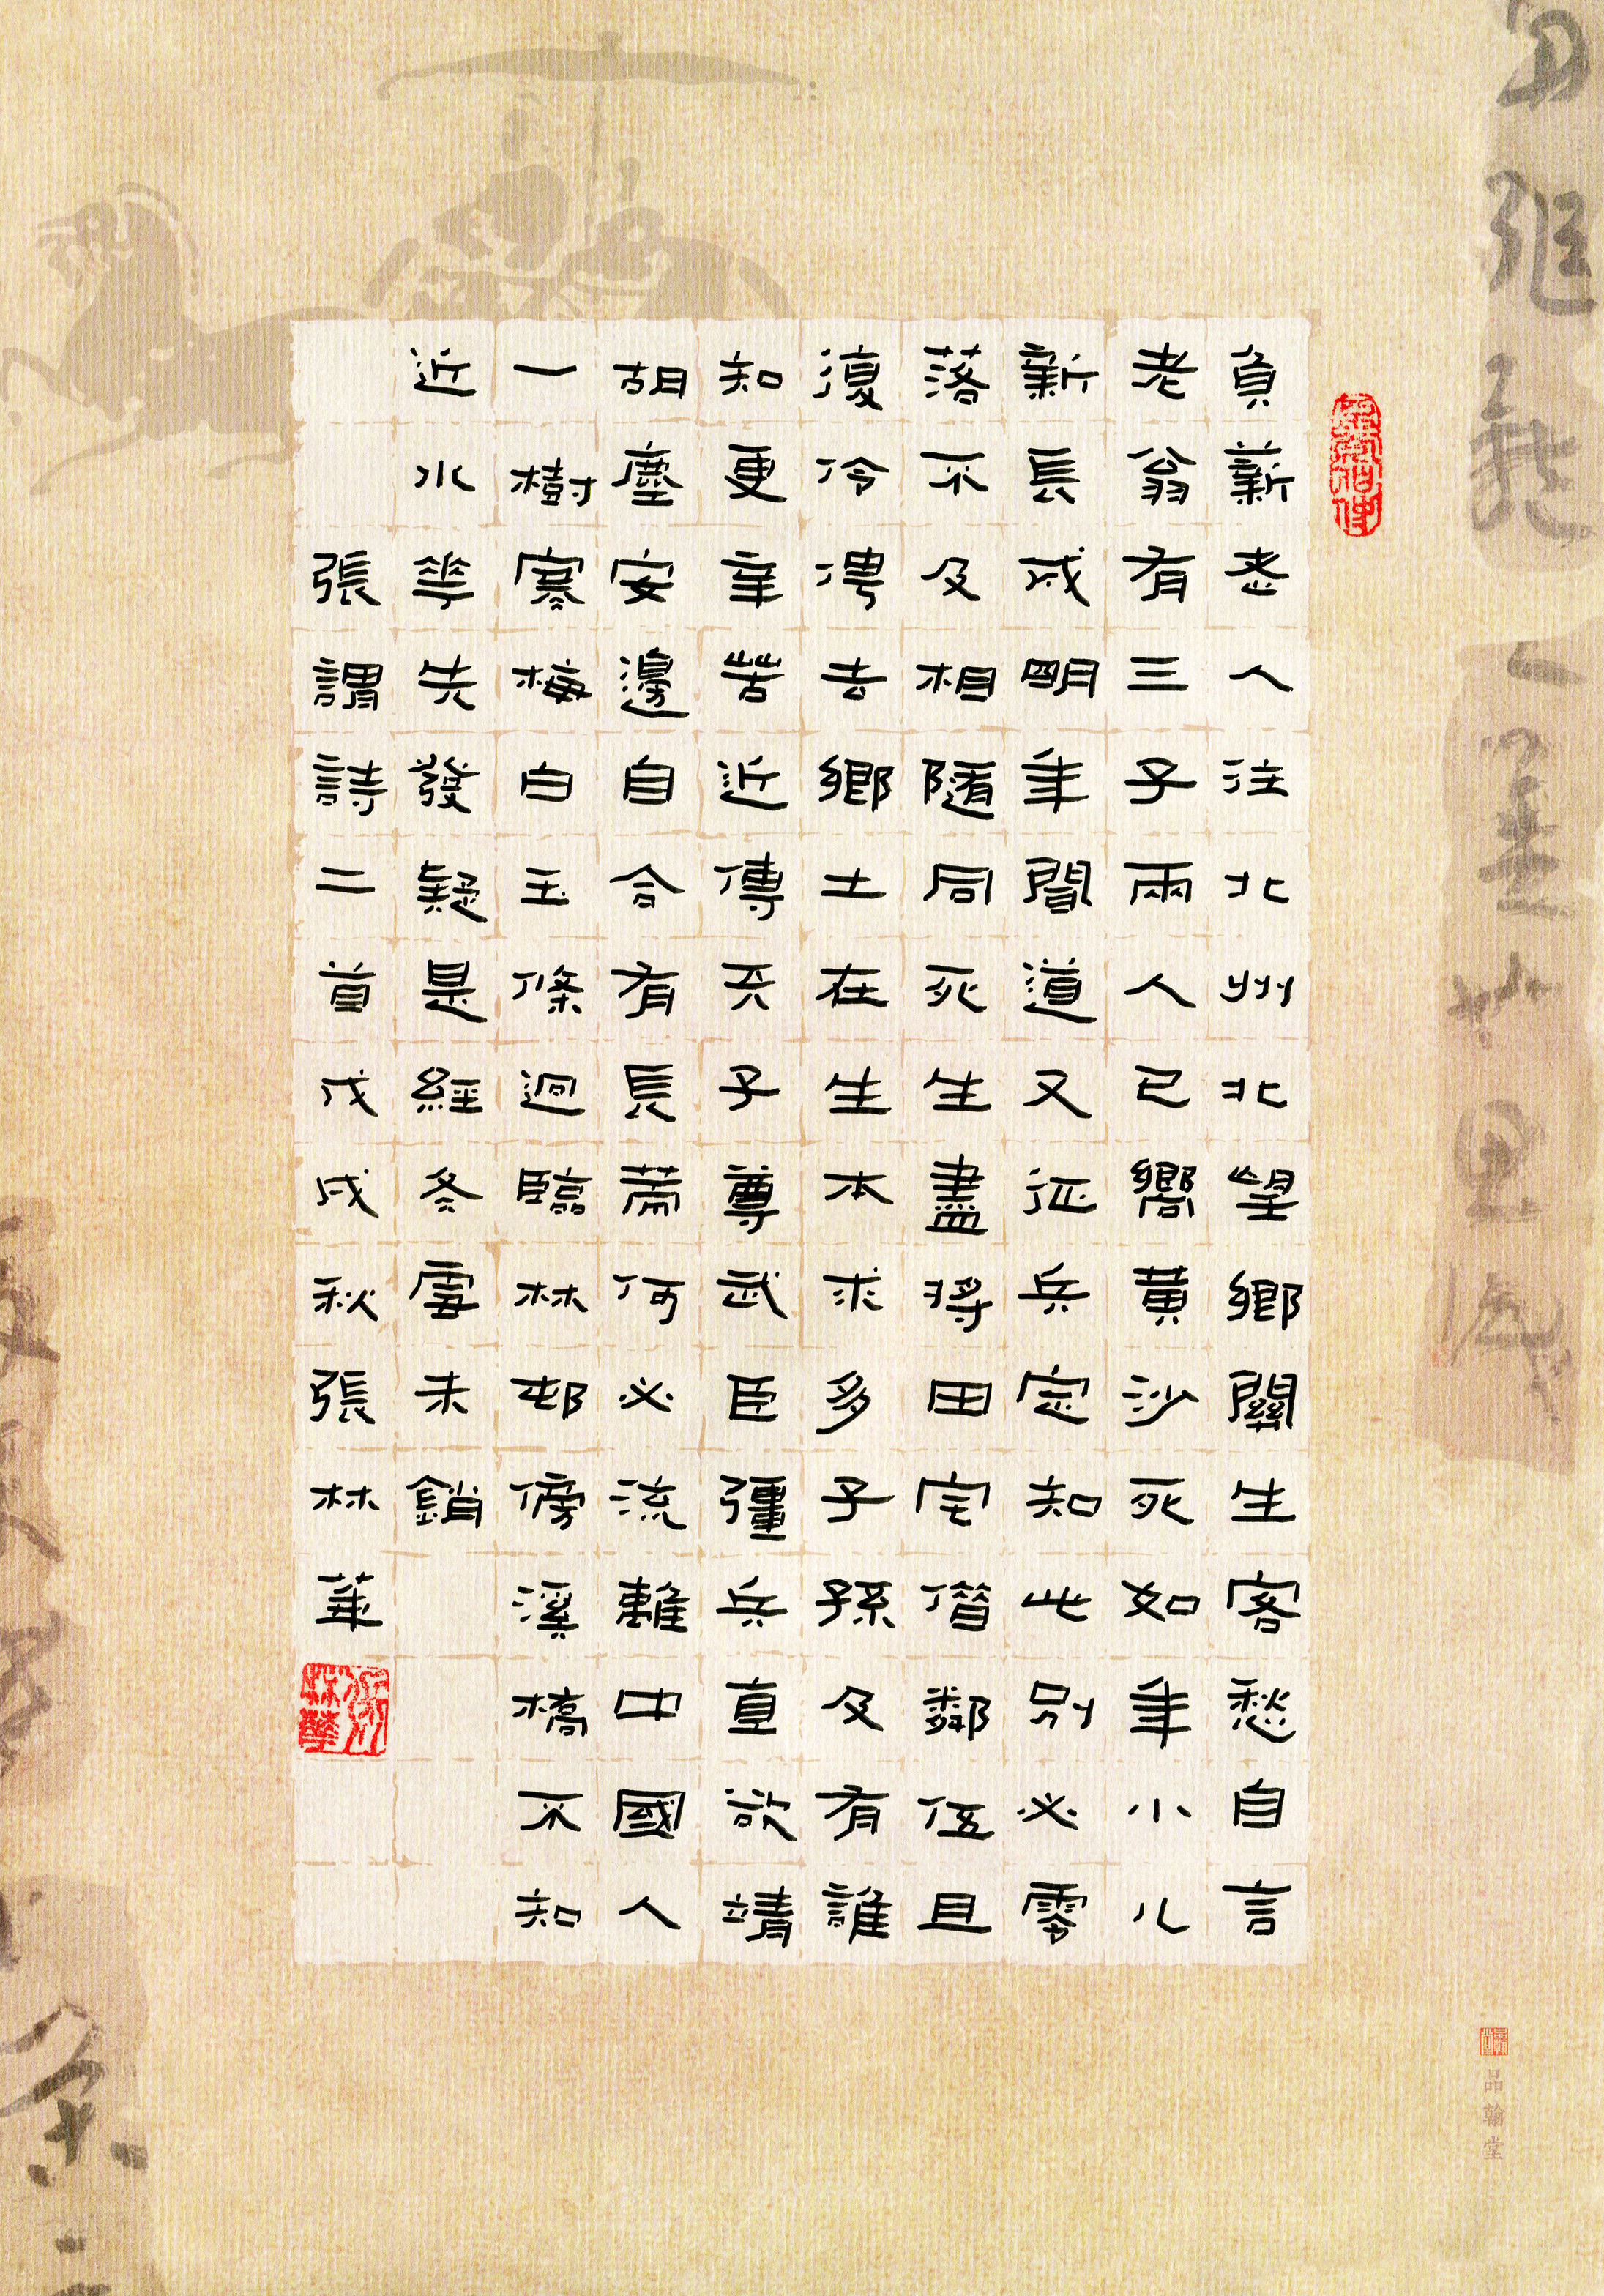 負薪老人注北州北望鄉關生客愁自言
老翁有三子兩人已嚮黃沙死如年小儿
新長成明年聞道又征兵定知此別必零
落不及相隨同死生盡將田宅借鄰伍且
復伶俜去鄉土在生本求多子孫及有誰
知更辛苦近傳天子尊武臣彊兵直欲靖
胡塵安邊自合有長策何必流離中國人
一樹寒梅白玉條迥臨林邨傍溪橋不知
近水華先發疑是經冬雪未銷
張謂詩二首戊戌秋張林華
品翰堂